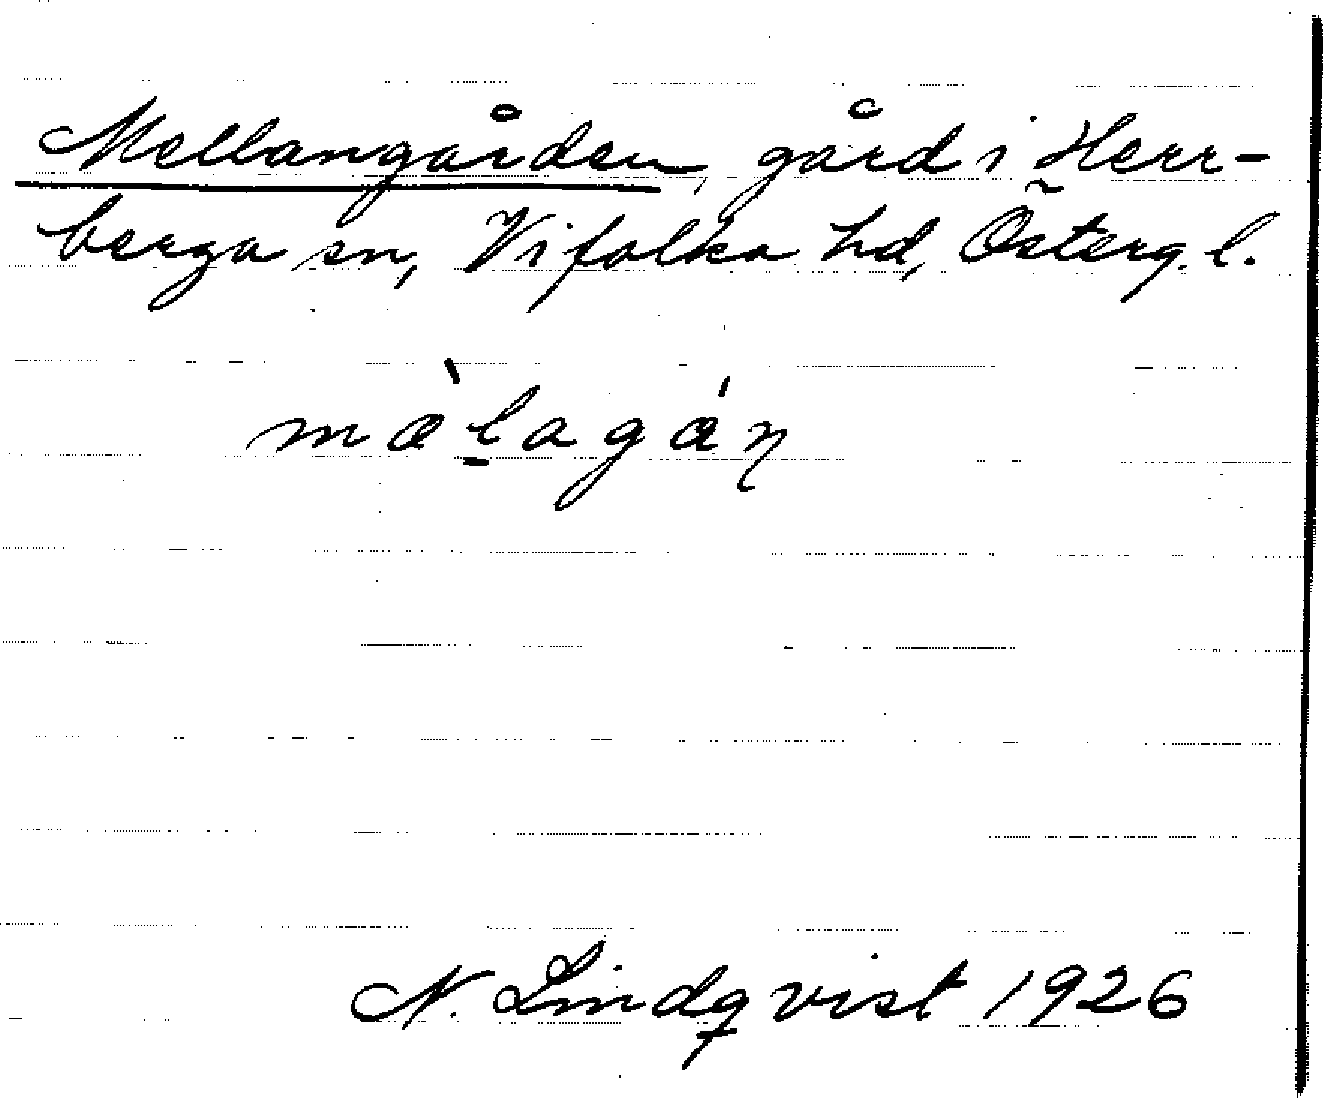 Mellangården, gård i Herr-
berga sn, Vifolka hd, Österg. l.
mæ̀l̠agáꞃ
N. Lindqvist 1926